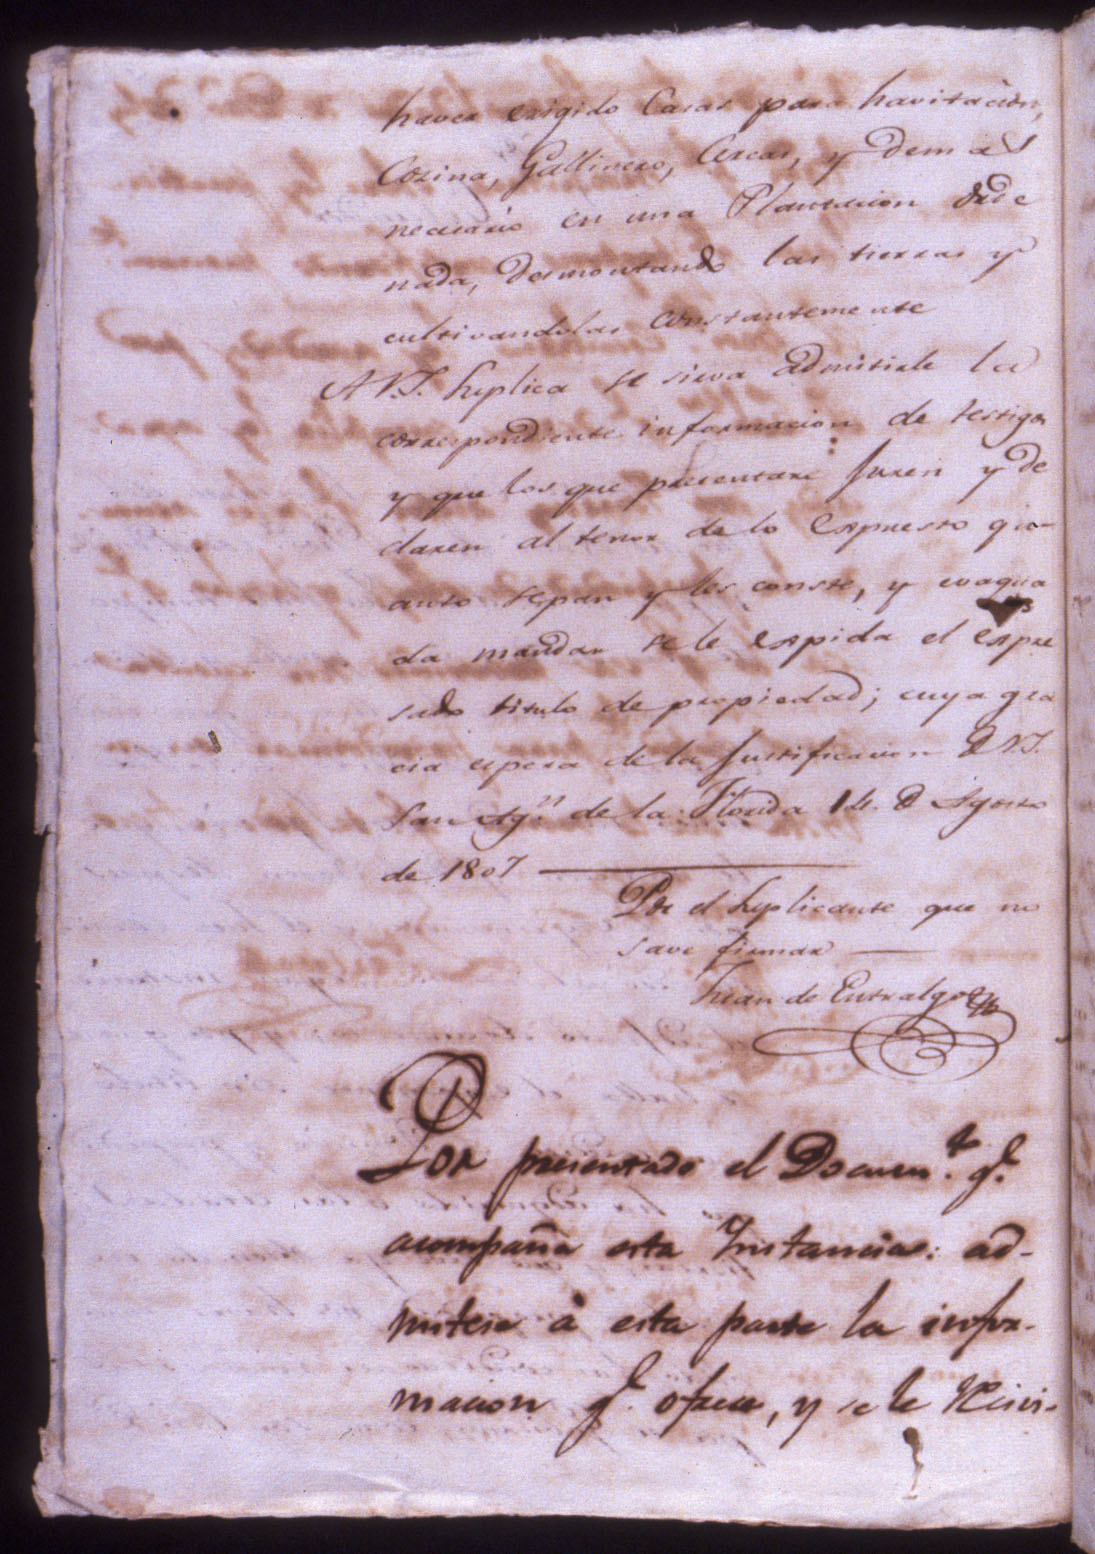 haver erigido Casas para havitacion,
Cozina, Gallinero, Cercas, y demas
necesario en una Plantacion orde
nada, desmontando las tierras y
cultivandolas constantemente
A V.S. Suplica se sirva admitirle la
correspondiente informacion de testigos
y que los que presentare juren y de
claren al tenor de lo expuesto qu
anto sepan y les conste, y evaqua
da mandar se le expida el expre
sado titulo de propiedad; cuya gra
cia espera de la justificacion de V.S.
San Agn. de la Florida 1 de Agosto
de 1807
Por el Suplicante que no
save firmar
Juan de Entralgo
Por presentado el Documto. qe.
acompaña esta Instancia: ad-
mitese à esta parte la infor-
macion qe. ofrece, y se le recivi-